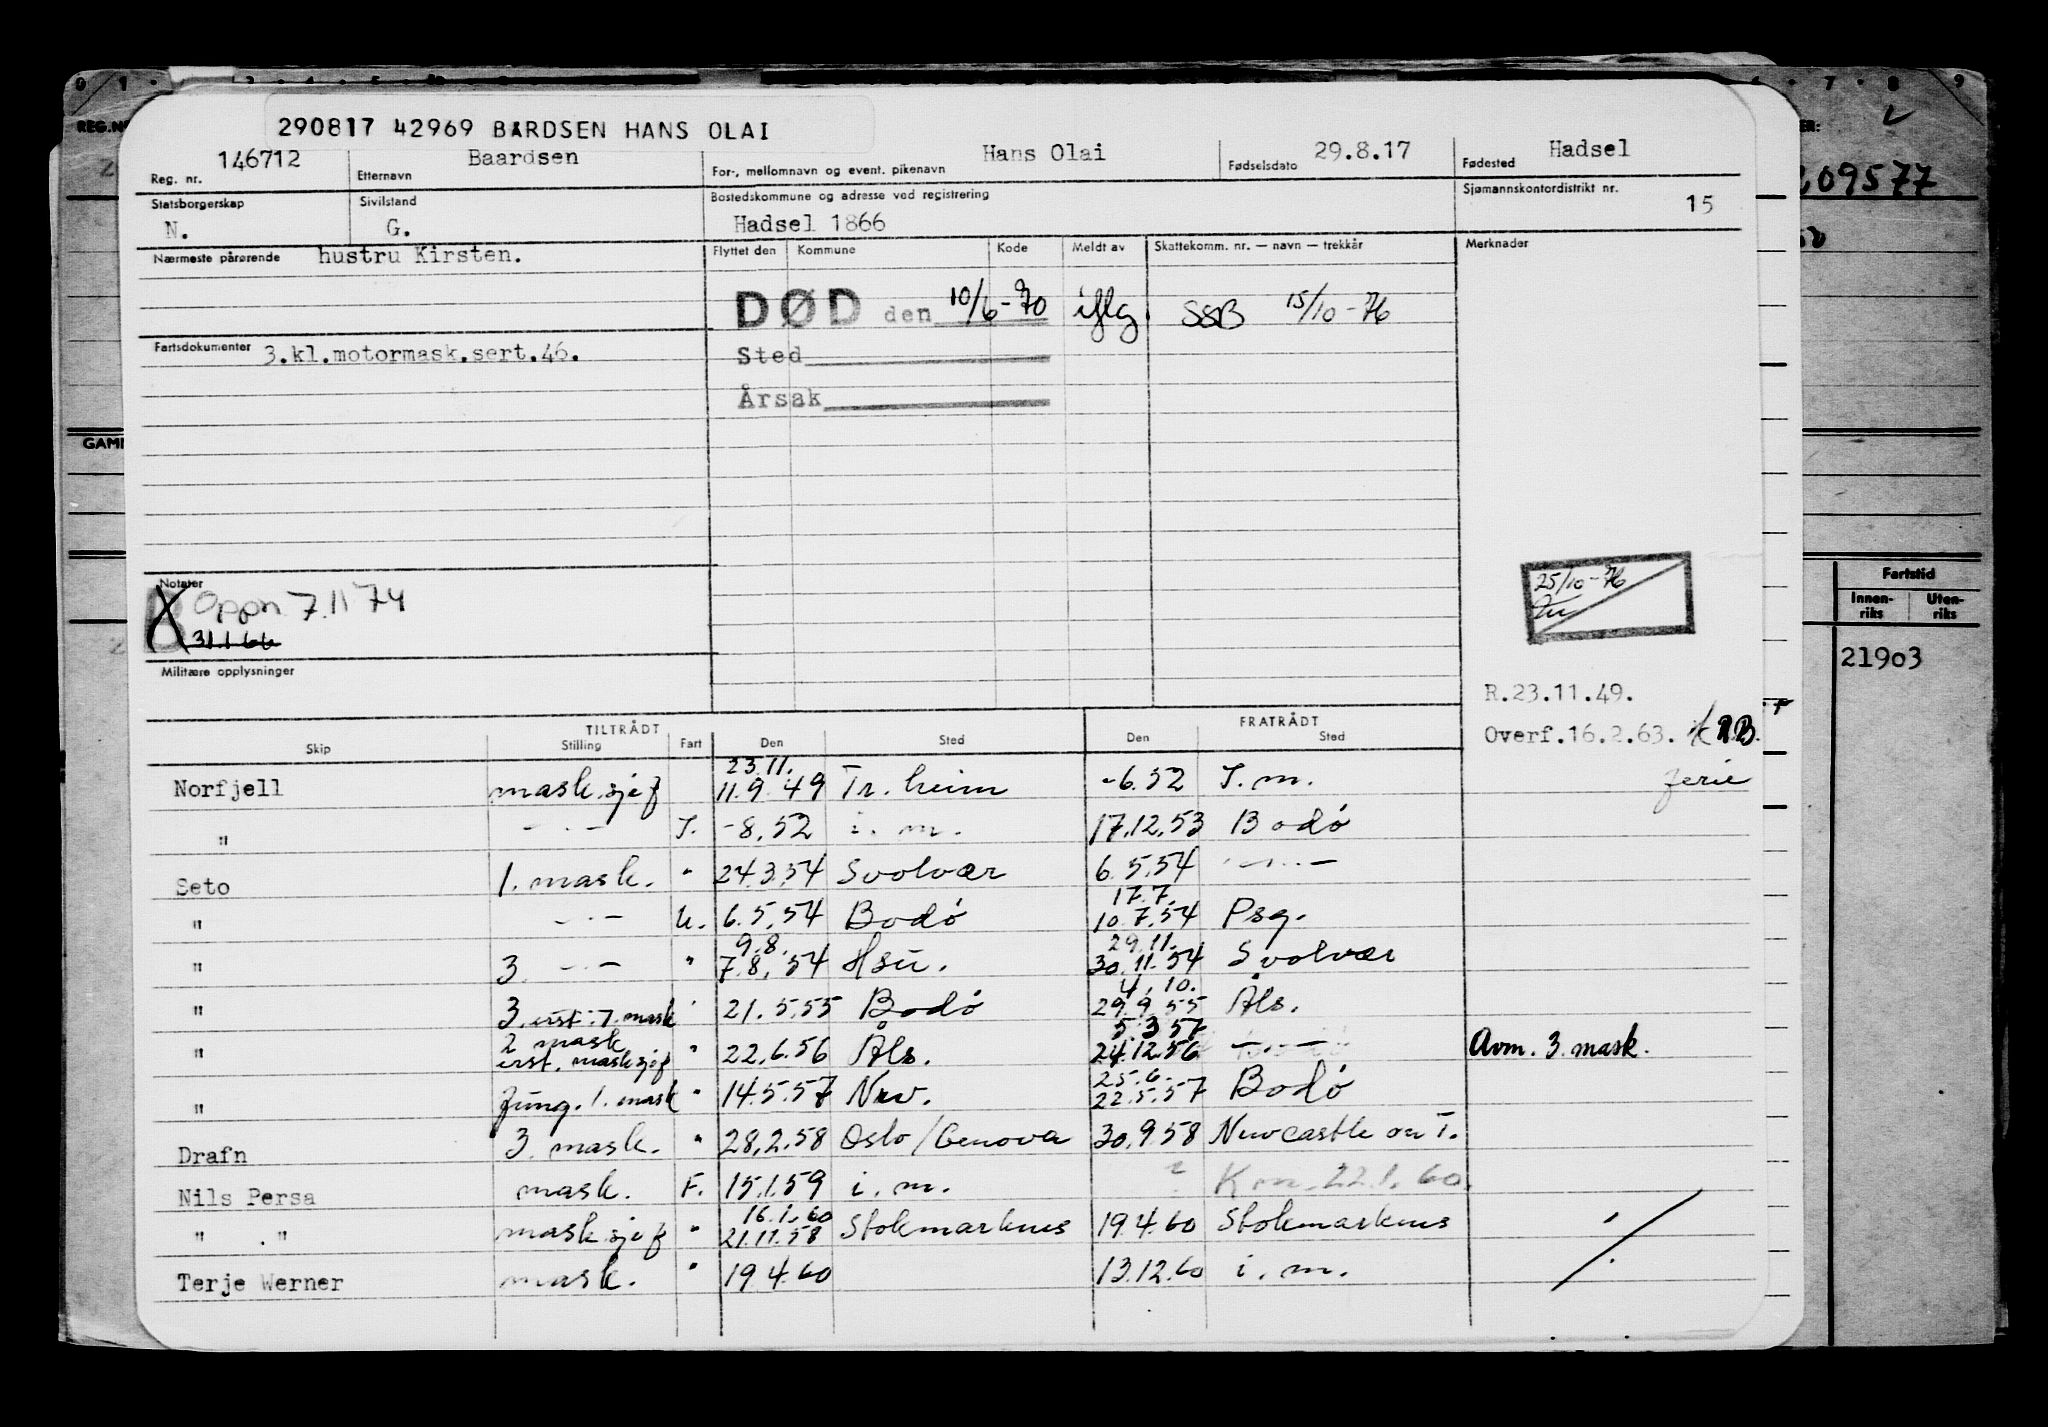 290817 42969 BÅRDSEN HANS OLAI
Reg. nr. 146712 Etternavn Baardsen For-, mellomnavn og event. pikenavn Hans Olai Fødselsdato 29.8.17 Fødested Hadsel
Statsborgerskap N. Sivilstand G. Bostedskommune og adresse ved registrering Hadsel 1866 Sjømannskontordistrikt nr. 15
Nærmeste pårørende hustru Kirsten. Flyttet den Kommune Kode Meldt av Skattekomm. nr. — navn — trekkår Merknader
DØD den 10/6-70 iflg. SSB 15/10-76
Fartsdokumenter 3.kl.motormask.sert.46. Sted
Årsak
Notater Oppn 7.11 74
31.1.66
25/10-76
Militære opplysninger
R.23.11.49.
Overf.16.2.63. R.B.
TILTRÅDT FRATRÅDT
Skip Stilling Fart Den Sted Den Sted
23.11.
Norfjell mask.sjef 11.9.49 Tr.heim -6.52 I.m. ferie
" -.- I. -8.52 i.m. 17.12.53 Bodö
Seto 1. mask. " 24.3.54 Svolvær 6.5.54 -.-
17.7.
" -.- U. 6.5.54 Bodö 10.7.54 Psg.
9.8. 29.11.
" 3. -.- " 7.8.54 Hsu. 30.11.54 Svolvær
4.10.
" 3. erst. 1. mask " 21.5.55 Bodö 29.9.55 Åls.
2 mask 5.3.57
" erst. masksjef " 22.6.56 Åls. 24.12.56 -.- Avm. 3. mask.
25.6.
" Fung. 1. mask " 14.5.57 Nrv. 22.5.57 Bodö
Drafn 3. mask. " 28.2.58 Oslo/Genova 30.9.58 Newcastle on T.
Nils Persa mask. F. 15.1.59 i.m. Km. 22.1.60.
16.1.60
" " mask.sjef " 21.11.58 Stokmarknes 19.4.60 Stokmarknes
Terje Werner mask. " 19.4.60 13.12.60 i.m.
REG.N
GAM
09577
Fartstid
Innen-riks Uten-riks
21903